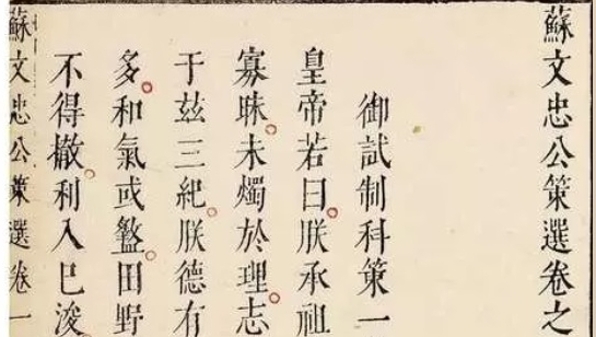 蘇文忠公策選卷之
御試制科策一
皇帝若曰朕承祖
寡昧未燭於理志
于茲三紀朕德有
多和氣或盭田野
不得撤利入已浚
蘇文忠公策選卷一